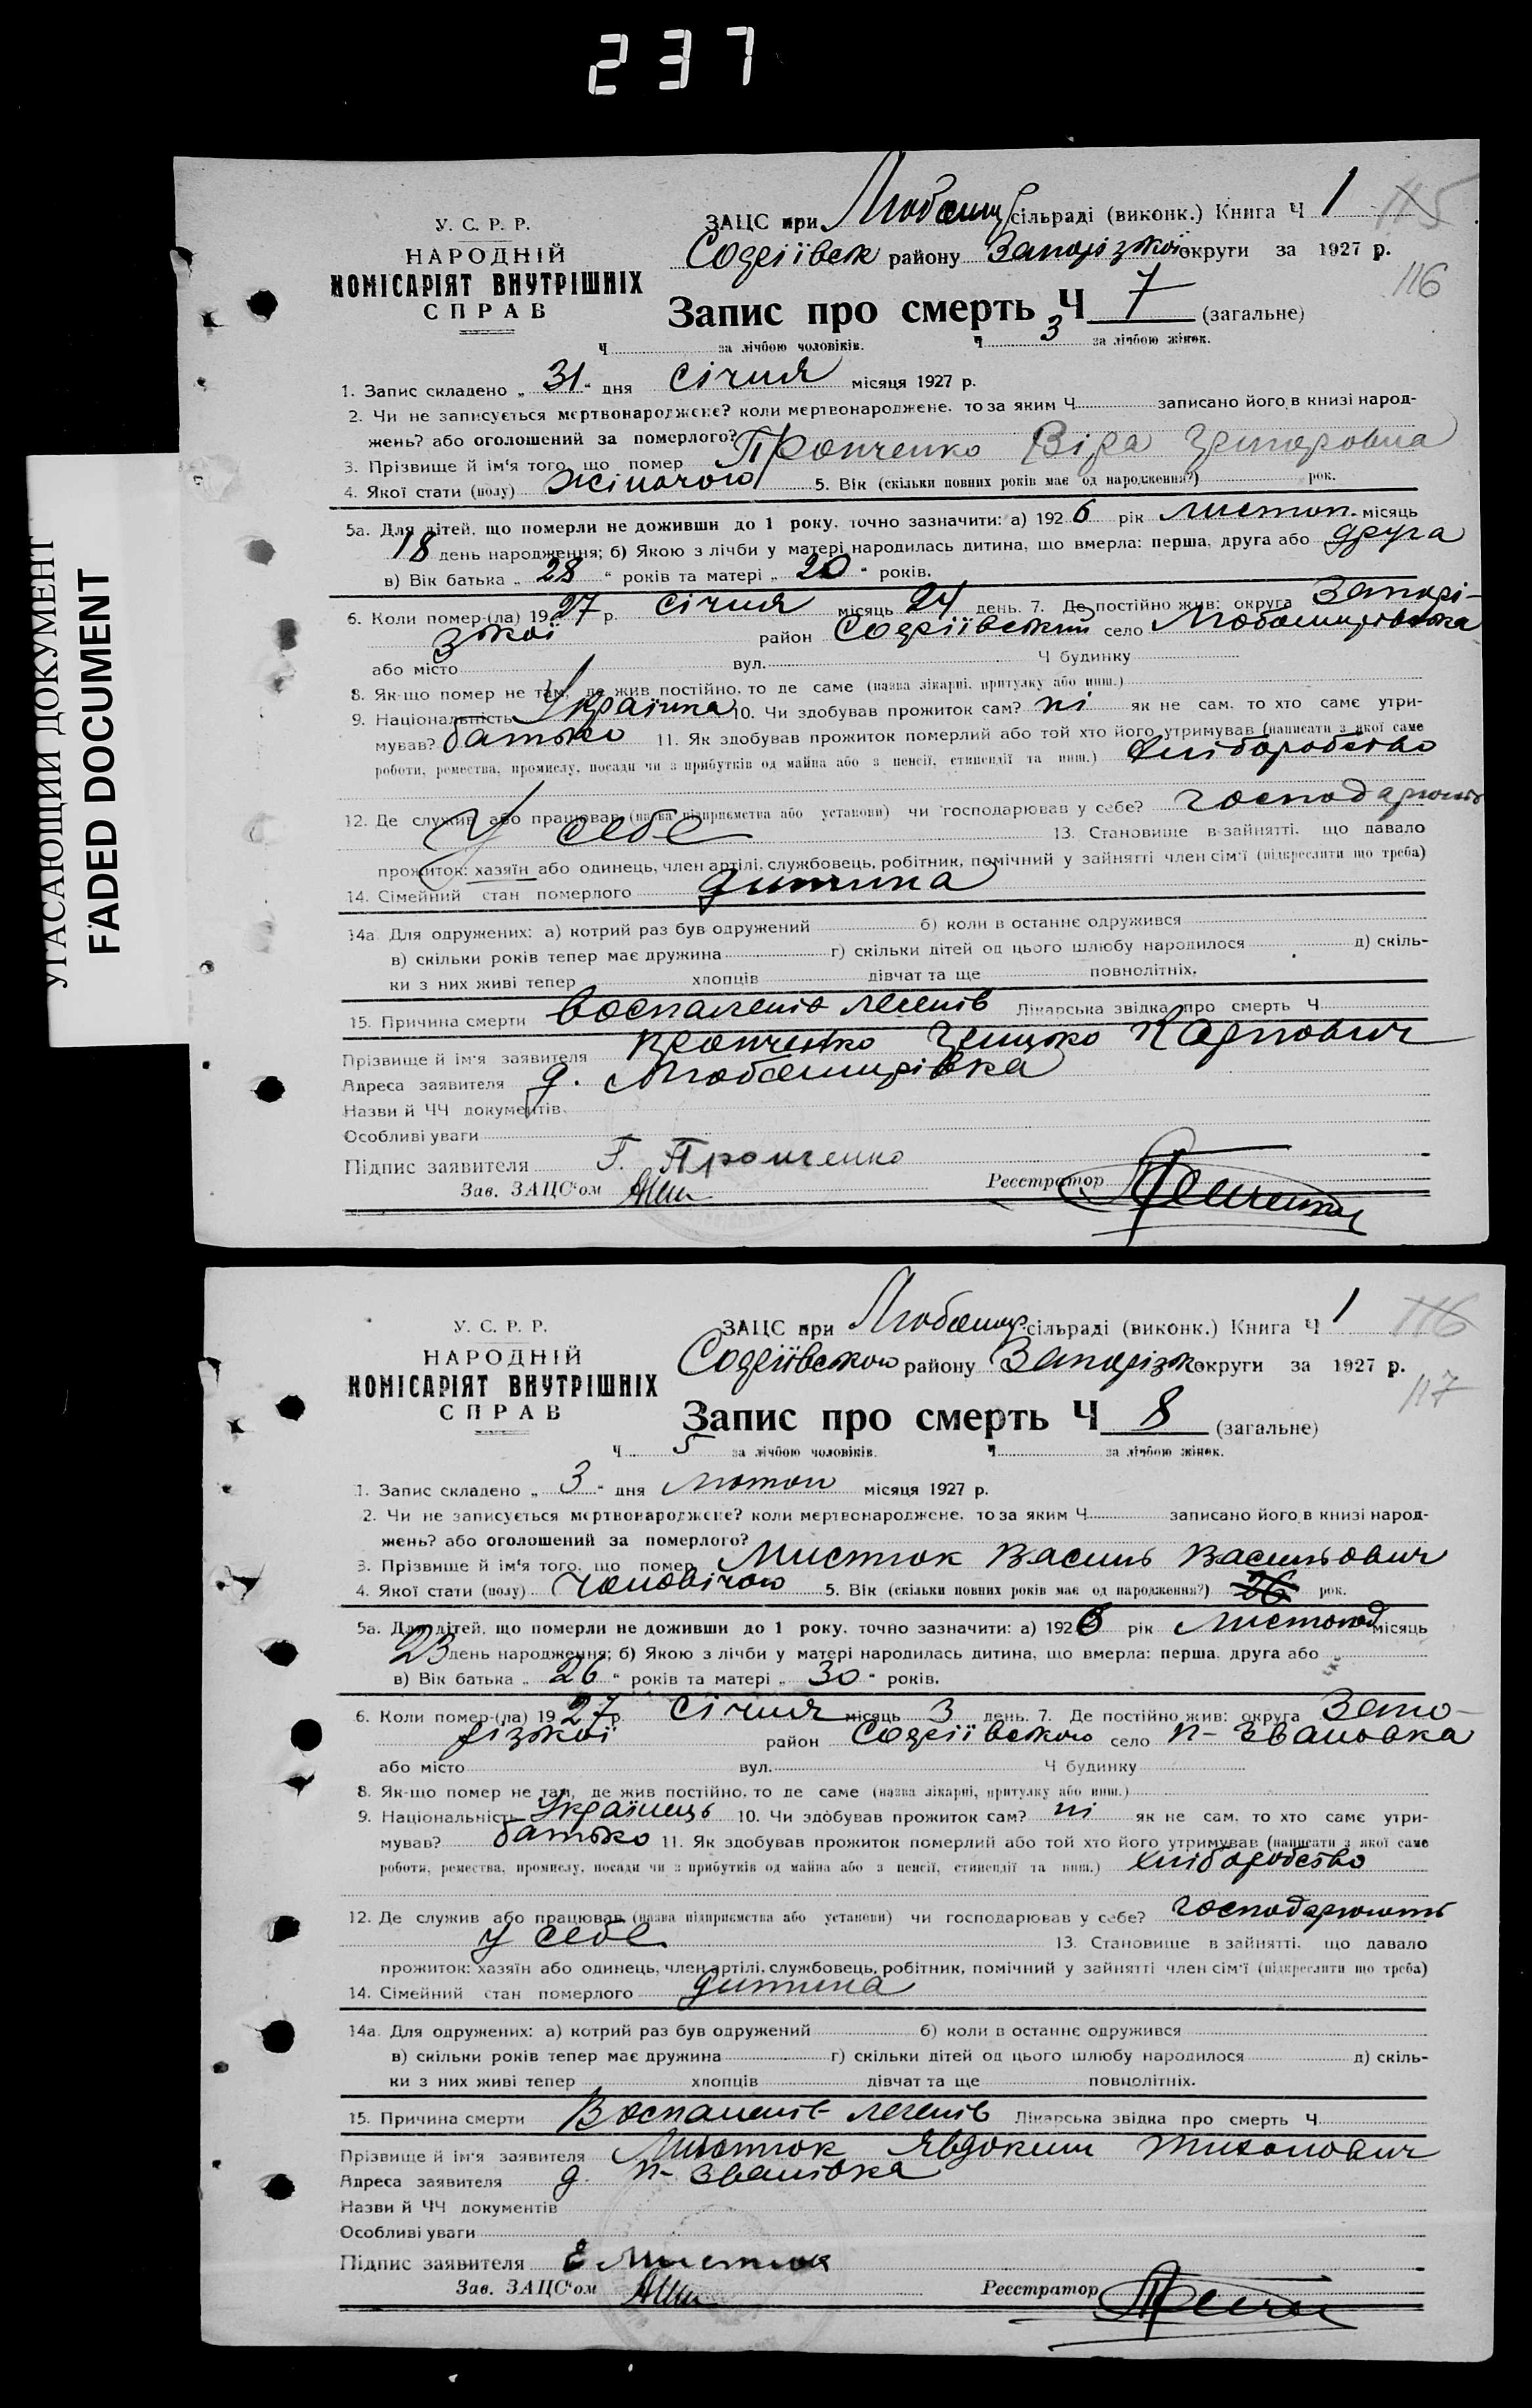 237
УГАСАЮЩИЙ ДОКУМЕНТ
FADED DOCUMENT
У. С. Р. Р.
НАРОДНІЙ
КОМІСАРІЯТ ВНУТРІШНІХ
СПРАВ
ЗАЦС при Любомир сільраді (виконк.) Книга Ч 1 115
Софіївськ району Запорізької округи за 1927 р.
116
Запис про смерть Ч 7 (загальне)
Ч за лічбою чоловіків. Ч 3 за лічбою жінок.
1. Запис складено „31“ дня Січня місяця 1927 р.
2. Чи не записується мертвонароджене? коли мертвонароджене, то за яким Ч записано його в книзі народ-
жень? або оголошений за померлого?
3. Прізвище й ім'я того, що помер Пронченко Віра Григоровна
4. Якої стати (полу) Жіночого 5. Вік (скільки повних років має од народження?) рок.
5а. Для дітей, що померли не доживши до 1 року, точно зазначити: а) 1926 рік листоп. місяць
18 день народження; б) Якою з лічби у матері народилась дитина, що вмерла: перша, друга або друга
в) Вік батька „28“ років та матері „20“ років.
6. Коли помер-(ла) 1927 р. Січня місяць 24 день. 7. Де постійно жив: округа Запорі-
зької район Софіївський село Любомирівка
або місто вул. Ч будинку
8. Як-що помер не там, де жив постійно, то де саме (назва лікарні, притулку або инш.)
9. Національність Українка 10. Чи здобував прожиток сам? ні як не сам, то хто саме утри-
мував? батько 11. Як здобував прожиток померлий або той хто його утримував (написати з якої саме
роботи, ремества, промислу, посади чи з прибутків од майна або з пенсії, стипендії та инш.) хліборобство
12. Де служив або працював (назва підприємства або установи) чи господарював у себе? господарюють
у себе 13. Становище в зайнятті, що давало
прожиток: хазяїн або одинець, член артілі, службовець, робітник, помічний у зайнятті член сім'ї (підкреслити що треба)
14. Сімейний стан померлого дитина
14а. Для одружених: а) котрий раз був одружений б) коли в останнє одружився
в) скільки років тепер має дружина г) скільки дітей од цього шлюбу народилося д) скіль-
ки з них живі тепер хлопців дівчат та ще повнолітніх.
15. Причина смерти Воспаленів легенів Лікарська звідка про смерть Ч
Прізвище й ім'я заявителя Пронченко Грицько Карпович
Адреса заявителя д. Любомирівка
Назви й ЧЧ документів
Особливі уваги
Підпис заявителя Г. Пронченко
Зав. ЗАЦС'ом Реєстратор
У. С. Р. Р.
НАРОДНІЙ
КОМІСАРІЯТ ВНУТРІШНІХ
СПРАВ
ЗАЦС при Любомир. сільраді (виконк.) Книга Ч 1 116
Софіївського району Запорізьк округи за 1927 р.
117
Запис про смерть Ч 8 (загальне)
Ч 5 за лічбою чоловіків. Ч за лічбою жінок.
1. Запис складено „3“ дня Лютого місяця 1927 р.
2. Чи не записується мертвонароджене? коли мертвонароджене, то за яким Ч записано його в книзі народ-
жень? або оголошений за померлого?
3. Прізвище й ім'я того, що помер Мистюк Василь Васильович
4. Якої стати (полу) Чоловічого 5. Вік (скільки повних років має од народження?) 26 рок.
5а. Для дітей, що померли не доживши до 1 року, точно зазначити: а) 1926 рік Листопад місяць
23 день народження; б) Якою з лічби у матері народилась дитина, що вмерла: перша, друга або
в) Вік батька „26“ років та матері „30“ років.
6. Коли помер-(ла) 1927 р. Січня місяць 3 день. 7. Де постійно жив: округа Запо-
різької район Софіївського село п-Івановка
або місто вул. Ч будинку
8. Як-що помер не там, де жив постійно, то де саме (назва лікарні, притулку або инш.)
9. Національність Українець 10. Чи здобував прожиток сам? ні як не сам, то хто саме утри-
мував? батько 11. Як здобував прожиток померлий або той хто його утримував (написати з якої саме
роботи, ремества, промислу, посади чи з прибутків од майна або з пенсії, стипендії та инш.) хліборобство
12. Де служив або працював (назва підприємства або установи) чи господарював у себе? господарюють
у себе 13. Становище в зайнятті, що давало
прожиток: хазяїн або одинець, член артілі, службовець, робітник, помічний у зайнятті член сім'ї (підкреслити що треба)
14. Сімейний стан померлого дитина
14а. Для одружених: а) котрий раз був одружений б) коли в останнє одружився
в) скільки років тепер має дружина г) скільки дітей од цього шлюбу народилося д) скіль-
ки з них живі тепер хлопців дівчат та ще повнолітніх.
15. Причина смерти Воспаленів легенів Лікарська звідка про смерть Ч
Прізвище й ім'я заявителя Мистюк Явдоким Тихонович
Адреса заявителя д. п-Іванівка
Назви й ЧЧ документів
Особливі уваги
Підпис заявителя Е Мистюк
Зав. ЗАЦС'ом Реєстратор